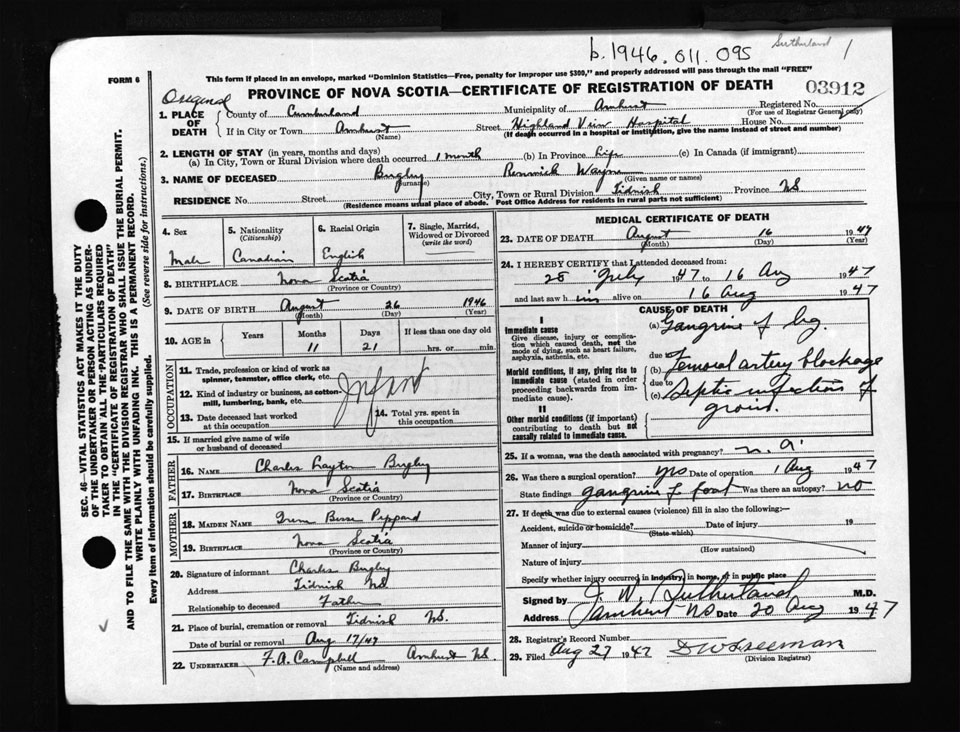 b.1946.011.095
Sutherland 1
FORM 6
This form if placed in an envelope, marked "Dominion Statistics—Free, penalty for improper use $300," and properly addressed will pass through the mail "FREE"
PROVINCE OF NOVA SCOTIA—CERTIFICATE OF REGISTRATION OF DEATH
03912
Original
1. PLACE OF DEATH
County of Cumberland Municipality of Amherst Registered No.
(For use of Registrar General only)
If in City or Town Amherst Street Highland View Hospital House No.
(Name) (If death occurred in a hospital or institution, give the name instead of street and number)
2. LENGTH OF STAY (in years, months and days)
(a) In City, Town or Rural Division where death occurred 1 month (b) In Province Life (c) In Canada (if immigrant)
3. NAME OF DECEASED Bugley Renwick Wayne
(Surname) (Given name or names)
RESIDENCE No. Street City, Town or Rural Division Tidnish Province NS
(Residence means usual place of abode. Post Office Address for residents in rural parts not sufficient)
4. Sex
Male
5. Nationality
(Citizenship)
Canadian
6. Racial Origin
English
7. Single, Married, Widowed or Divorced
(write the word)
8. BIRTHPLACE Nova Scotia
(Province or Country)
9. DATE OF BIRTH August 26 1946
(Month) (Day) (Year)
10. AGE in Years Months Days If less than one day old
11 21 hrs. or min.
OCCUPATION
11. Trade, profession or kind of work as spinner, teamster, office clerk, etc.
12. Kind of industry or business, as cotton-mill, lumbering, bank, etc.
Infant
13. Date deceased last worked at this occupation
14. Total yrs. spent in this occupation
15. If married give name of wife or husband of deceased
FATHER
16. NAME Charles Layton Bugley
17. BIRTHPLACE Nova Scotia
(Province or Country)
MOTHER
18. MAIDEN NAME Pippard
19. BIRTHPLACE Nova Scotia
(Province or Country)
20. Signature of informant Charles Bugley
Address Tidnish NS.
Relationship to deceased Father
21. Place of burial, cremation or removal Tidnish NS.
Date of burial or removal Aug 17/47
22. UNDERTAKER F.A. Campbell Amherst NS.
(Name and address)
MEDICAL CERTIFICATE OF DEATH
23. DATE OF DEATH August 16 1947
(Month) (Day) (Year)
24. I HEREBY CERTIFY that I attended deceased from:
25 July 1947 to 16 Aug 1947
and last saw him alive on 16 Aug 1947
CAUSE OF DEATH
I
Immediate cause
Give disease, injury or complication which caused death, not the mode of dying, such as heart failure, asphyxia, asthenia, etc.
(a) Gangrine of leg.
due to
Morbid conditions, if any, giving rise to immediate cause (stated in order proceeding backwards from immediate cause).
(b) Femoral artery blockage
due to
(c) Septic infection of groin.
II
Other morbid conditions (if important) contributing to death but not causally related to immediate cause.
25. If a woman, was the death associated with pregnancy? n.a.
26. Was there a surgical operation? yes Date of operation 1 Aug 1947
State findings gangrine of foot Was there an autopsy? no
27. If death was due to external causes (violence) fill in also the following:—
Accident, suicide or homicide? Date of injury 19
(State which)
Manner of injury
(How sustained)
Nature of injury
Specify whether injury occurred in industry, in home, or in public place
Signed by J. W. Sutherland M.D.
Address Amherst NS Date 20 Aug 1947
28. Registrar's Record Number
29. Filed Aug 27 1947 D W Freeman
(Division Registrar)
SEC. 46—VITAL STATISTICS ACT MAKES IT THE DUTY
OF THE UNDERTAKER OR PERSON ACTING AS UNDER-
TAKER TO OBTAIN ALL THE PARTICULARS REQUIRED
IN THE "CERTIFICATE OF REGISTRATION OF DEATH"
AND TO FILE THE SAME WITH THE DIVISION REGISTRAR WHO SHALL ISSUE THE BURIAL PERMIT.
WRITE PLAINLY WITH UNFADING INK. THIS IS A PERMANENT RECORD.
Every item of information should be carefully supplied. (See reverse side for instructions.)